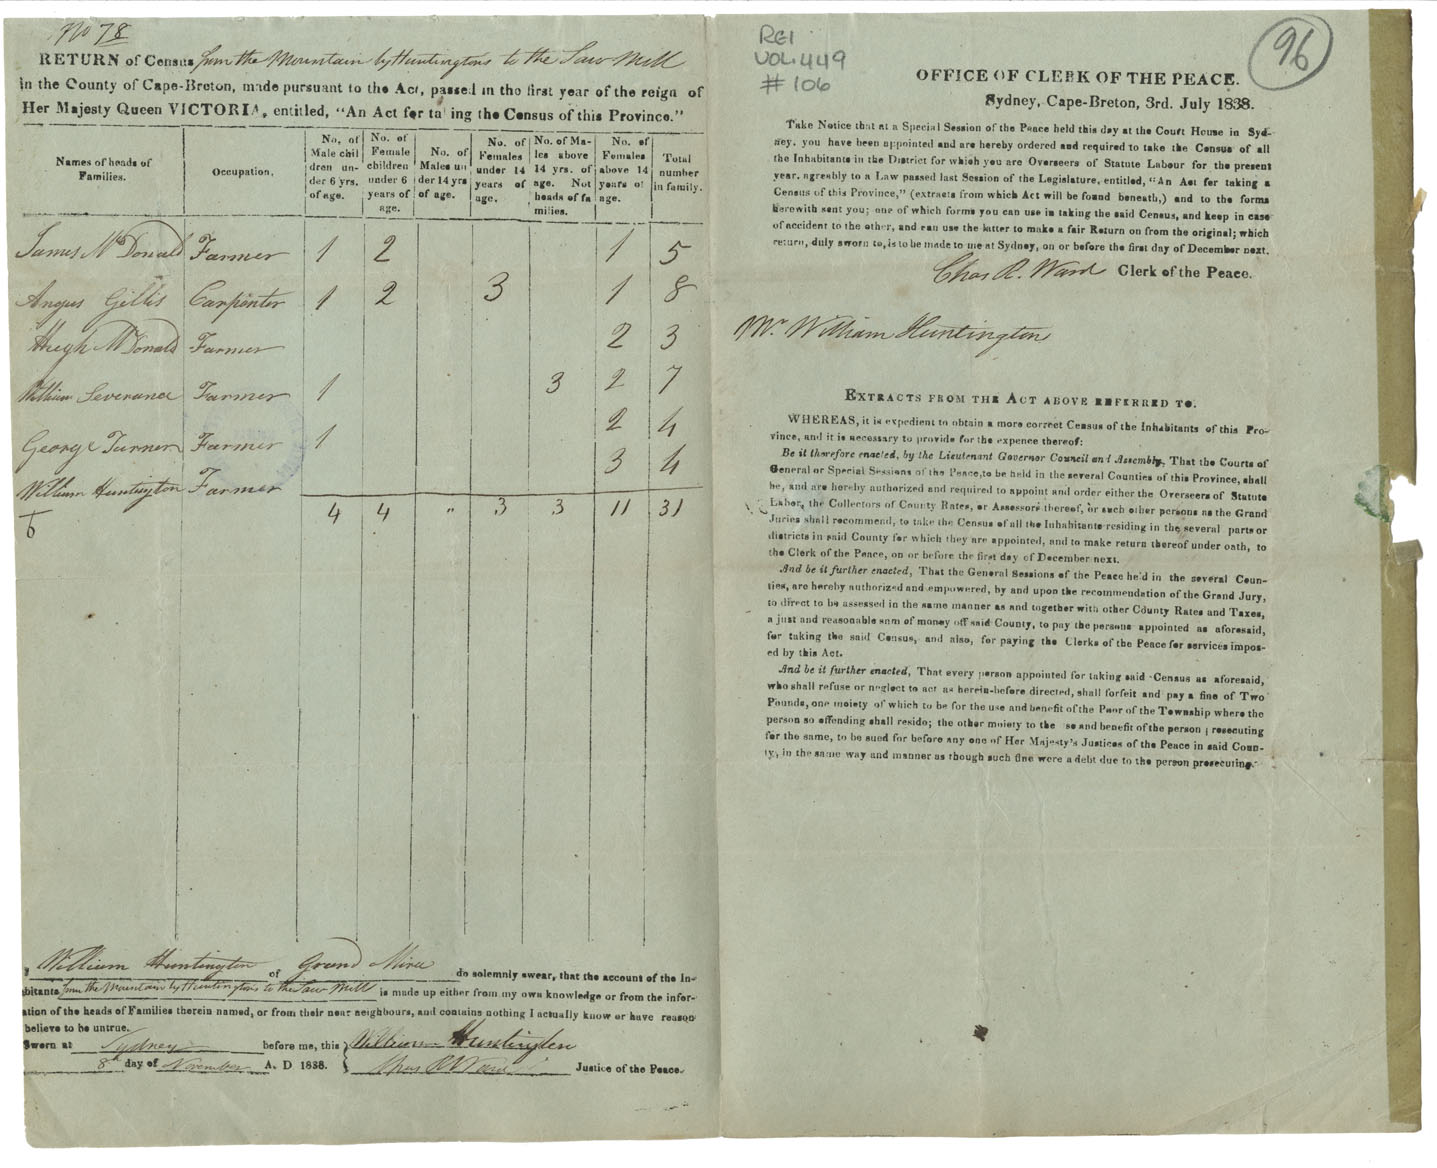 No 78
RETURN of Census from the Mountain by Huntingtons to the Saw Mill
in the County of Cape-Breton, made pursuant to the Act, passed in the first year of the reign of
Her Majesty Queen VICTORIA, entitled, "An Act for ta ing the Census of this Province."
Names of heads of Families. | Occupation, | No. of Male chil dren un- der 6 yrs. of age. | No. of Female children under 6 years of age. | No. of Males un der 14 yrs of age. | No. of Females under 14 years of age, | No. of Ma- les above 14 yrs. of age. Not heads of fa milies. | No. of Females above 14 years of age. | Total number in family.
James McDonald Farmer 1 2 1 5
Angus Gillis Carpenter 1 2 3 1 8
Hugh McDonald Farmer 2 3
William Severance Farmer 1 3 2 7
George Turner Farmer 1 2 4
William Huntington Farmer 3 4
6 4 4 " 3 3 11 31
William Huntington of Grand Mira do solemnly swear, that the account of the In-
bitants from the Mountain by Huntingtons to the Saw Mill is made up either from my own knowledge or from the infor-
ation of the heads of Families therein named, or from their near neighbours, and contains nothing I actually know or have reason
believe to be untrue.
Sworn at Sydney before me, this } William Huntington
8th day of November A. D 1838. Chas R Ward Justice of the Peace.
REI
VOL 449
# 106
96
OFFICE OF CLERK OF THE PEACE.
Sydney, Cape-Breton, 3rd. July 1838.
Take Notice that at a Special Session of the Peace held this day at the Court House in Syd-
ney, you have been appointed and are hereby ordered and required to take the Census of all
the Inhabitants in the District for which you are Overseers of Statute Labour for the present
year, agreably to a Law passed last Session of the Legislature, entitled, "An Act for taking a
Census of this Province," (extracts from which Act will be found beneath,) and to the forms
herewith sent you; one of which forms you can use in taking the said Census, and keep in case
of accident to the other, and can use the latter to make a fair Return on from the original; which
return, duly sworn to, is to be made to me at Sydney, on or before the first day of December next.
Chas R. Ward Clerk of the Peace.
Mr William Huntington
EXTRACTS FROM THE ACT ABOVE REFERRED TO.
WHEREAS, it is expedient to obtain a more correct Census of the Inhabitants of this Pro-
vince, and it is necessary to provide for the expence thereof:
Be it therefore enacted, by the Lieutenant Governor Council and Assembly, That the Courts of
General or Special Sessions of the Peace, to be held in the several Counties of this Province, shall
be, and are hereby authorized and required to appoint and order either the Overseers of Statute
Labor, the Collectors of County Rates, or Assessors thereof, or such other persons as the Grand
Juries shall recommend, to take the Census of all the Inhabitants residing in the several parts or
districts in said County for which they are appointed, and to make return thereof under oath, to
the Clerk of the Peace, on or before the first day of December next.
And be it further enacted, That the General Sessions of the Peace held in the several Coun-
ties, are hereby authorized and empowered, by and upon the recommendation of the Grand Jury,
to direct to be assessed in the same manner as and together with other County Rates and Taxes,
a just and reasonable sum of money off said County, to pay the persons appointed as aforesaid,
for taking the said Census, and also, for paying the Clerks of the Peace for services impos-
ed by this Act.
And be it further enacted, That every person appointed for taking said Census as aforesaid,
who shall refuse or neglect to act as herein-before directed, shall forfeit and pay a fine of Two
Pounds, one moiety of which to be for the use and benefit of the Poor of the Township where the
person so offending shall reside; the other moiety to the se and benefit of the person prosecuting
for the same, to be sued for before any one of Her Majesty's Justices of the Peace in said Coun-
ty, in the same way and manner as though such fine were a debt due to the person prosecuting.